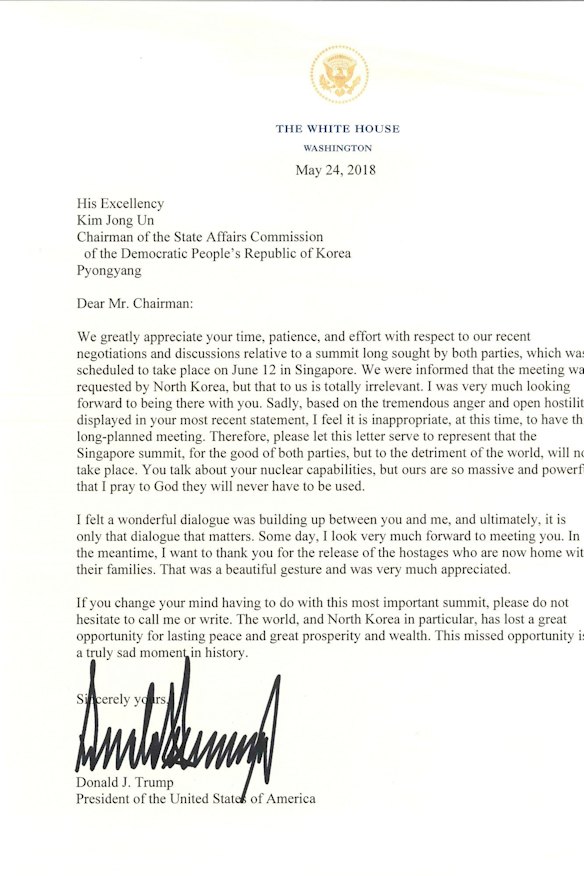 THE WHITE HOUSE
WASHINGTON
May 24, 2018
His Excellency
Kim Jong Un
Chairman of the State Affairs Commission
of the Democratic People's Republic of Korea
Pyongyang
Dear Mr. Chairman:
We greatly appreciate your time, patience, and effort with respect to our recent
negotiations and discussions relative to a summit long sought by both parties, which was
scheduled to take place on June 12 in Singapore. We were informed that the meeting wa
requested by North Korea, but that to us is totally irrelevant. I was very much looking
forward to being there with you. Sadly, based on the tremendous anger and open hostilit
displayed in your most recent statement, I feel it is inappropriate, at this time, to have th
long-planned meeting. Therefore, please let this letter serve to represent that the
Singapore summit, for the good of both parties, but to the detriment of the world, will no
take place. You talk about your nuclear capabilities, but ours are so massive and powerf
that I pray to God they will never have to be used.
I felt a wonderful dialogue was building up between you and me, and ultimately, it is
only that dialogue that matters. Some day, I look very much forward to meeting you. In
the meantime, I want to thank you for the release of the hostages who are now home wit
their families. That was a beautiful gesture and was very much appreciated.
If you change your mind having to do with this most important summit, please do not
hesitate to call me or write. The world, and North Korea in particular, has lost a great
opportunity for lasting peace and great prosperity and wealth. This missed opportunity is
a truly sad moment in history.
Sincerely yours,
Donald J. Trump
President of the United States of America